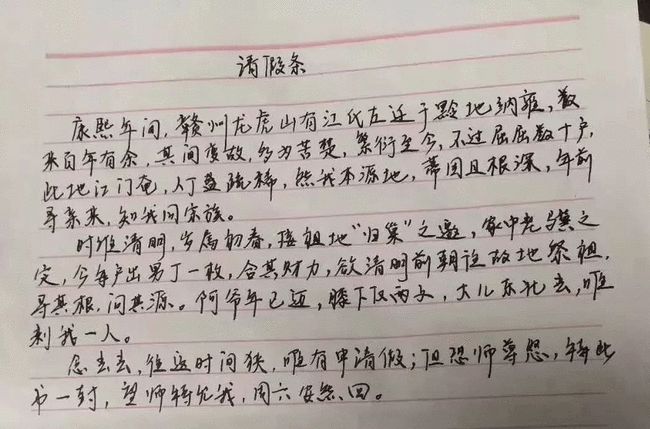 请假条
康熙年间，赣州龙虎山有江氏左迁于黔地纳雍，数
来百年有余，其间变故，多为苦楚，繁衍至今，不过屈屈数十户，
此地江门奄，人丁益疏稀，然我本源地，蒂固且根深，年前
寻亲来，知我同宗族。
时维清明，岁属初春，接祖地“归巢”之邀，家中老骥之
定，今每户出男丁一枚，合其财力，欲清明前朝诣故地祭祖，
寻其根，问其源。阿爷年已迈，膝下仅两子，大儿东北去，唯
剩我一人。
念去去，往返时间狭，唯有申请假；但恐师尊怒，特此
书一封，望师特允我，周六安然回。